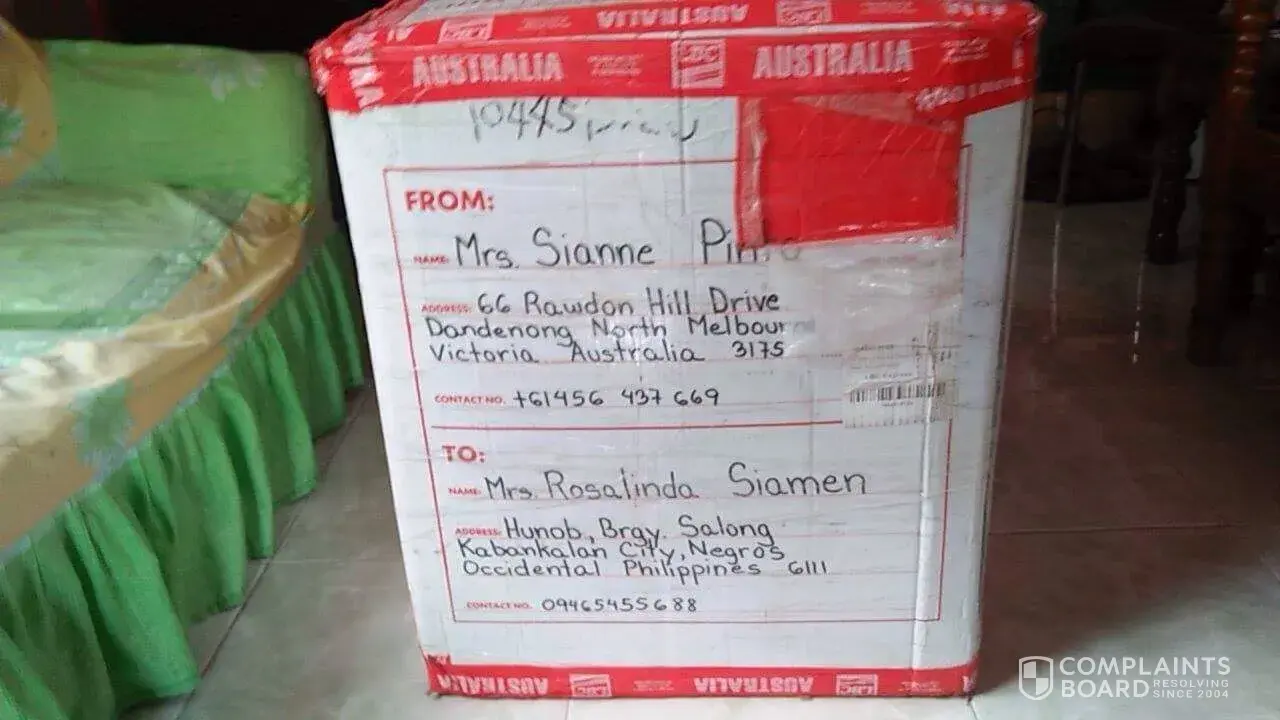 AUSTRALIA
AUSTRALIA LBC AUSTRALIA
10445
FROM:
NAME: Mrs. Sianne
ADDRESS: 66 Rawdon Hill Drive
Dandenong North
Victoria Australia 3175
CONTACT NO. +61456 437 669
TO:
NAME: Mrs. Rosalinda Siamen
ADDRESS: Hunob, Brgy. Salong
Kabankalan City, Negros
Occidental Philippines 6111
CONTACT NO. 09465455688
AUSTRALIA LBC AUSTRALIA LBC
COMPLAINTS
BOARD RESOLVING
SINCE 2004